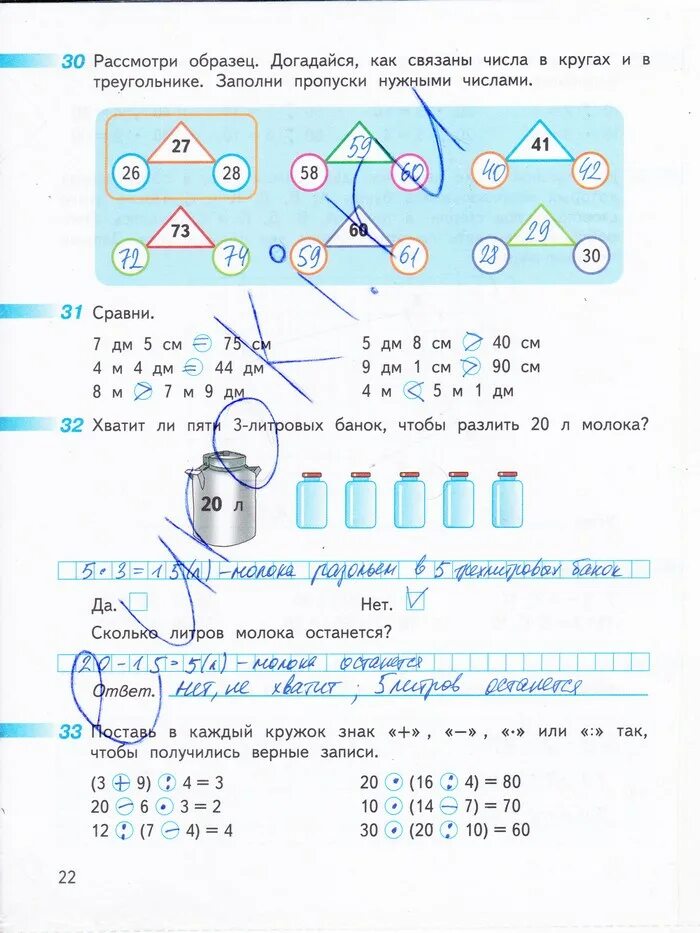 30 Рассмотри образец. Догадайся, как связаны числа в кругах и в
треугольнике. Заполни пропуски нужными числами.
27 59 41
26 28 58 60 40 42
73 60 29
72 74 59 61 28 30
31 Сравни.
7 дм 5 см = 75 см 5 дм 8 см > 40 см
4 м 4 дм = 44 дм 9 дм 1 см > 90 см
8 м > 7 м 9 дм 4 м < 5 м 1 дм
32 Хватит ли пяти 3-литровых банок, чтобы разлить 20 л молока?
20 л
5·3=15(л) – молока разольем в 5 трехлитровых банок
Да. Нет. V
Сколько литров молока останется?
20-15=5(л) – молока останется
Ответ. нет, не хватит; 5 литров останется
33 Поставь в каждый кружок знак «+», «−», «·» или «:» так,
чтобы получились верные записи.
(3 + 9) : 4 = 3 20 · (16 : 4) = 80
20 − 6 · 3 = 2 10 · (14 − 7) = 70
12 : (7 − 4) = 4 30 · (20 : 10) = 60
22